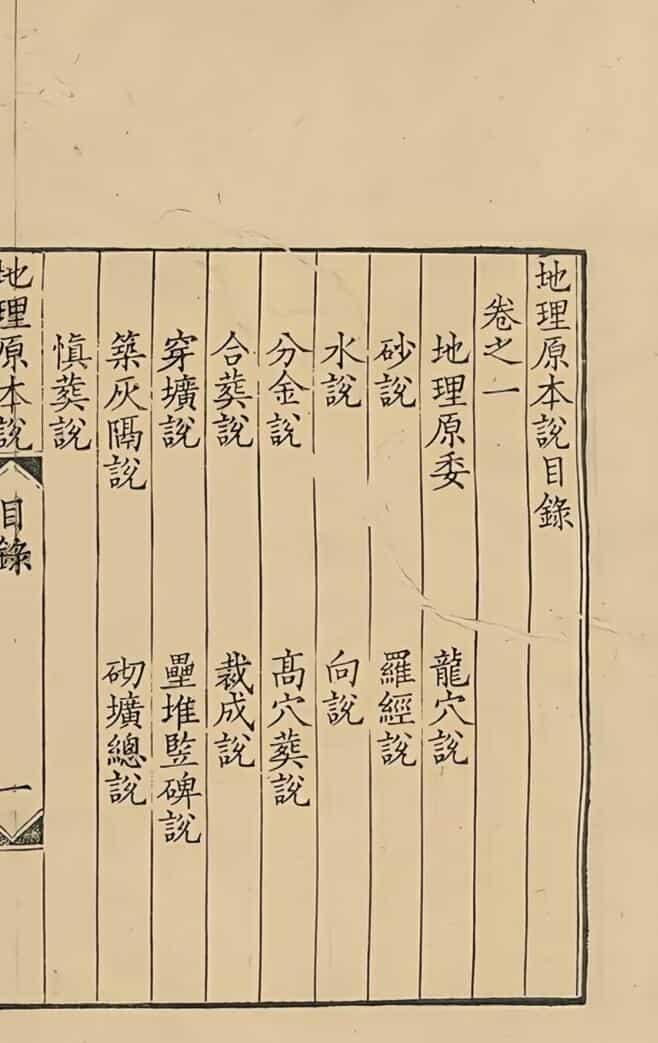 地理原本說目錄
卷之一
地理原委 龍穴說
砂說 羅經說
水說 向說
分金說 高穴葬說
合葬說 裁成說
穿壙說 壘堆竪碑說
築灰隔說 砌壙總說
慎葬說
地理原本說 目錄 一